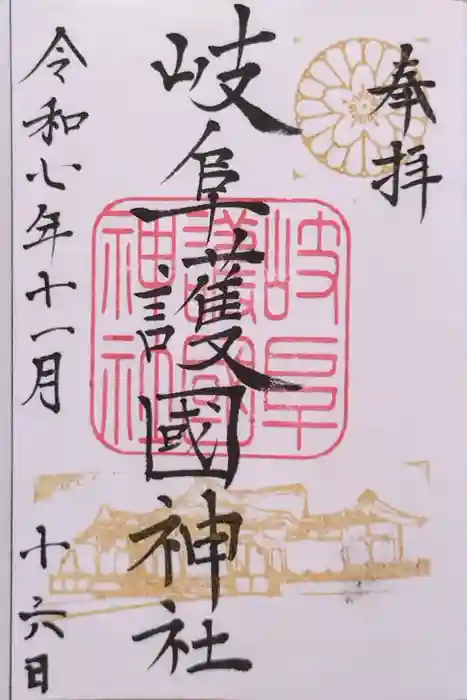 奉拝
岐阜護國神社
岐阜
護國
神社
令和七年十一月
十六日